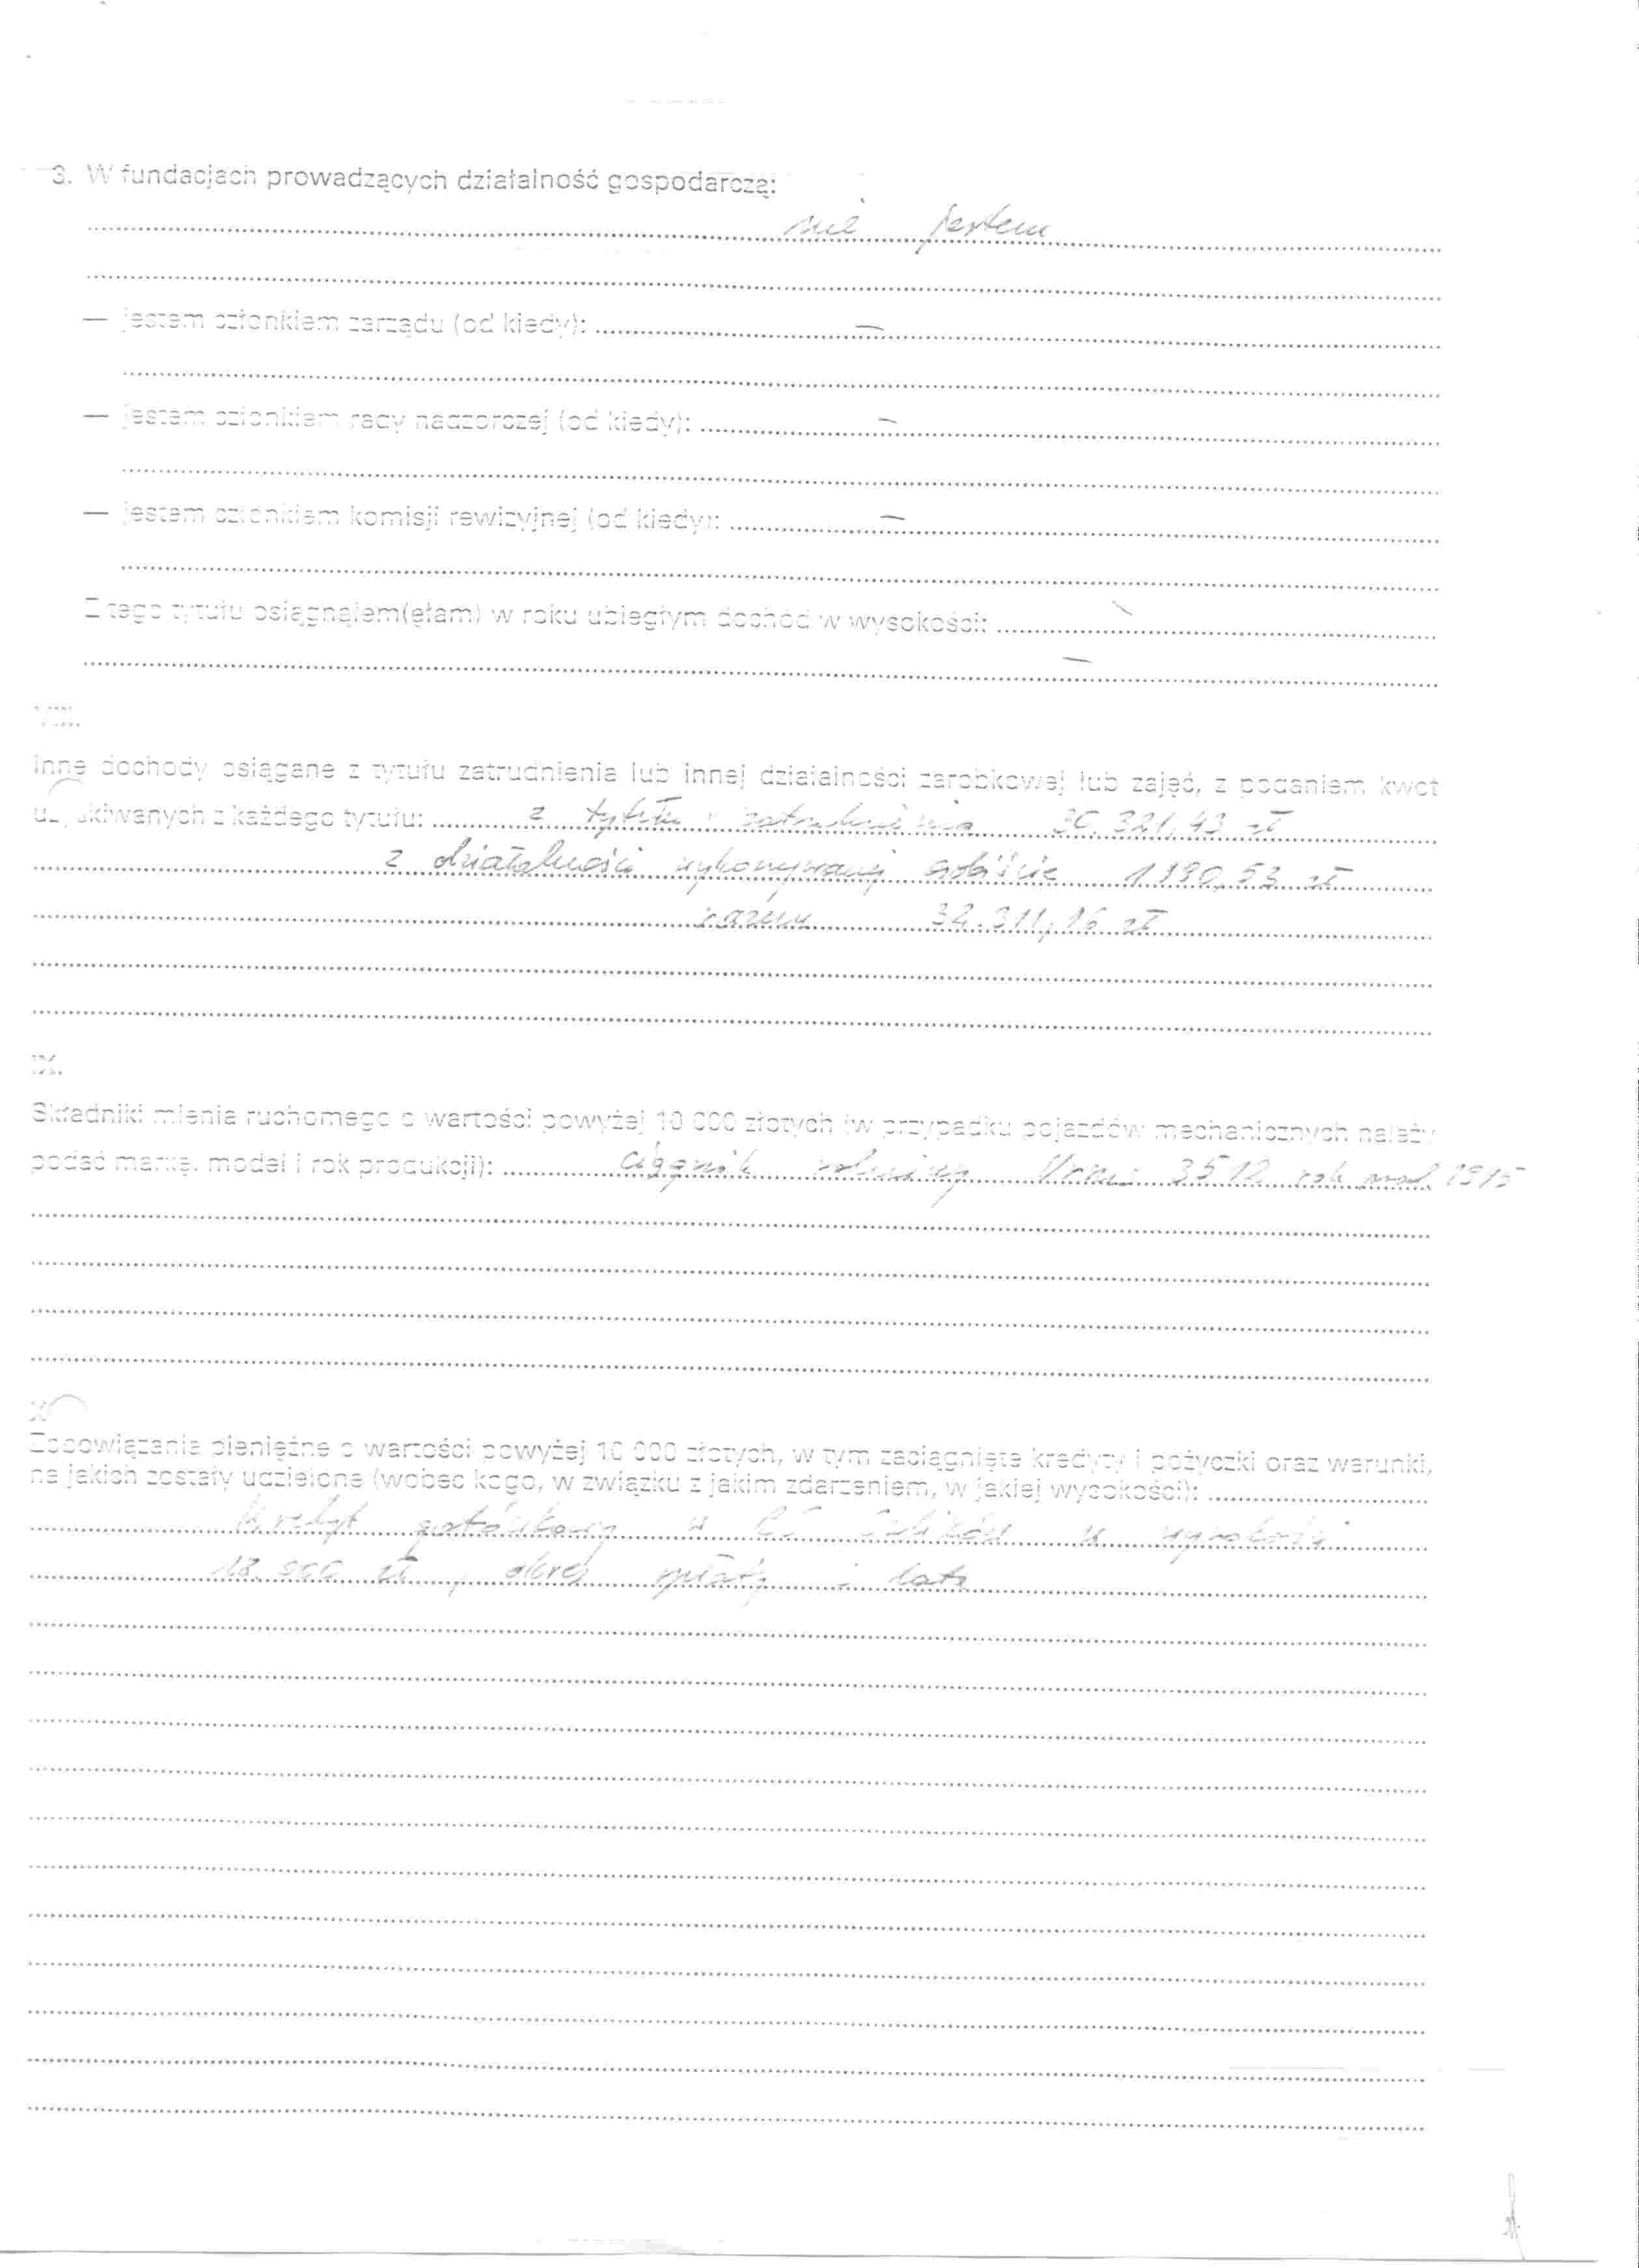 3. W fundacjach prowadzących działalność gospodarczą:
nie jestem
— jestem członkiem zarządu (od kiedy): –
— jestem członkiem rady nadzorczej (od kiedy): –
— jestem członkiem komisji rewizyjnej (od kiedy): –
Z tego tytułu osiągnąłem(ęłam) w roku ubiegłym dochód w wysokości:
–
VIII.
Inne dochody osiągane z tytułu zatrudnienia lub innej działalności zarobkowej lub zajęć, z podaniem kwot
uzyskiwanych z każdego tytułu: z tytułu zatrudnienia zł
z działalności wykonywanej osobiście zł
razem zł
IX.
Składniki mienia ruchomego o wartości powyżej 10 000 złotych (w przypadku pojazdów mechanicznych należy
podać markę, model i rok produkcji): ciągnik rolniczy Ursus 3512 rok prod.
X.
Zobowiązania pieniężne o wartości powyżej 10 000 złotych, w tym zaciągnięte kredyty i pożyczki oraz warunki,
na jakich zostały udzielone (wobec kogo, w związku z jakim zdarzeniem, w jakiej wysokości):
Kredyt gotówkowy w w wysokości
zł, okres spłaty lata